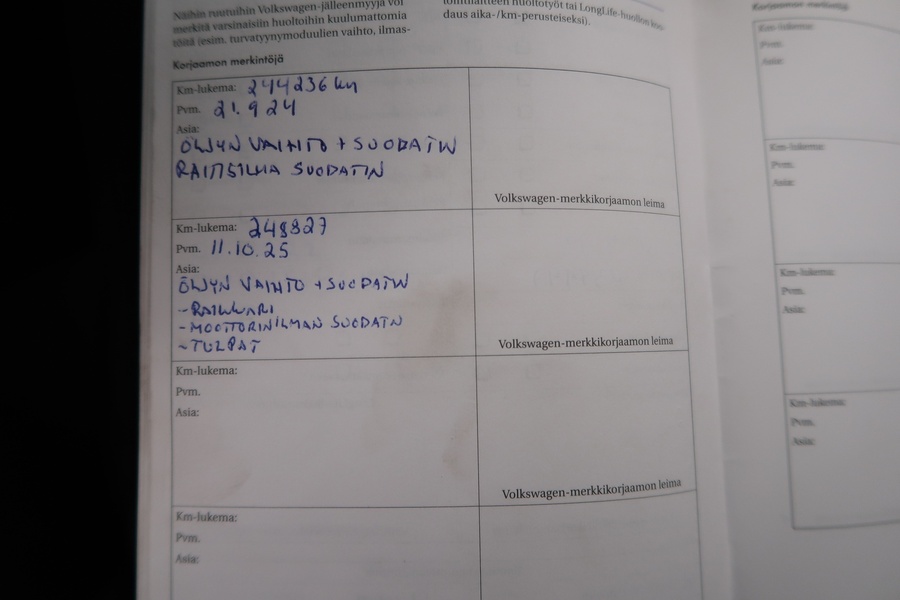 Näihin ruutuihin Volkswagen-jälleenmyyjä voi
merkitä varsinaisiin huoltoihin kuulumattomia
töitä (esim. turvatyynymoduulien vaihto, ilmas-
huoltotyöt tai LongLife-huollon
daus aika-/km-perusteiseksi).
Korjaamon merkintöjä
Km-lukema: 244236 km
Pvm. 21.9 24
Asia:
ÖLJYN VAIHTO + SUODATIN
RAITISILMA SUODATIN
Volkswagen-merkkikorjaamon leima
Km-lukema: 248827
Pvm. 11.10.25
Asia:
ÖLJYN VAIHTO + SUODATIN
- MOOTTORINILMAN SUODATIN
- TULPAT
Volkswagen-merkkikorjaamon leima
Km-lukema:
Pvm.
Asia:
Volkswagen-merkkikorjaamon leima
Km-lukema:
Pvm.
Asia:
Korjaamon merkintöjä
Km-lukema:
Pvm.
Asia:
Km-lukema:
Pvm.
Asia:
Km-lukema:
Pvm.
Asia:
Km-lukema:
Pvm.
Asia: